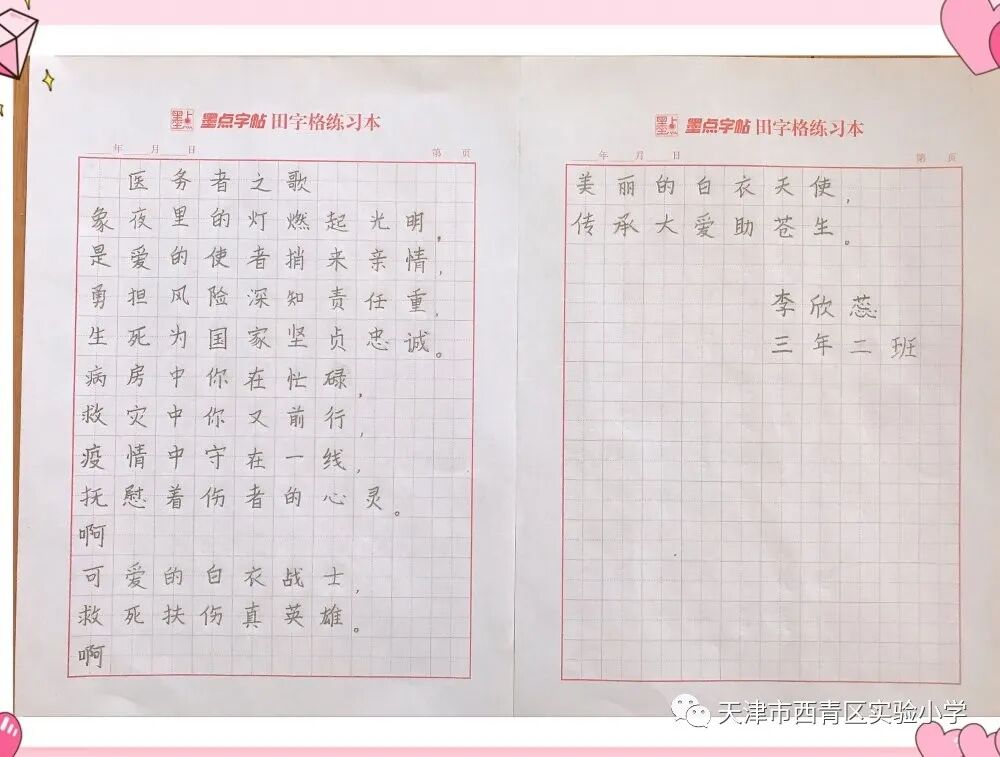 墨点字帖 田字格练习本
年 月 日 第 页
医务者之歌
象夜里的灯燃起光明，
是爱的使者捎来亲情，
勇担风险深知责任重，
生死为国家坚贞忠诚。
病房中你在忙碌，
救灾中你又前行，
疫情中守在一线，
抚慰着伤者的心灵。
啊
可爱的白衣战士，
救死扶伤真英雄。
啊
墨点字帖 田字格练习本
年 月 日 第 页
美丽的白衣天使，
传承大爱助苍生。
李欣蕊
三年二班
天津市西青区实验小学